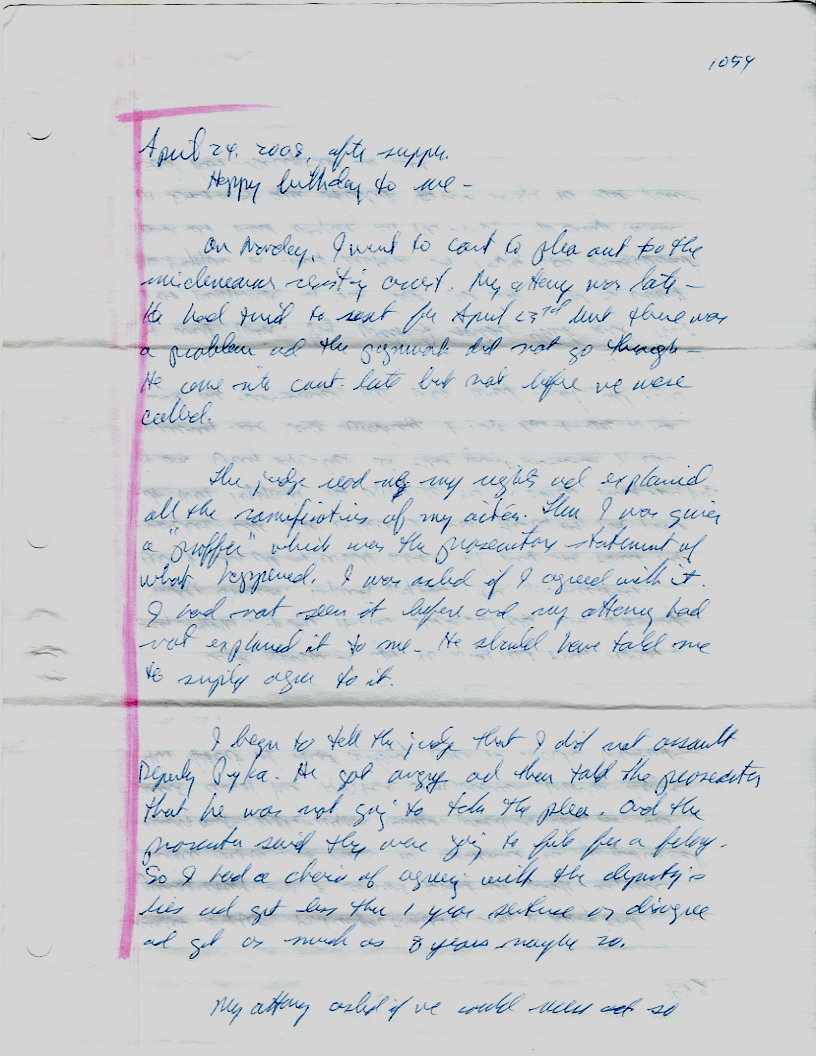 1054
April 24, 2008, after supper.
Happy birthday to me -
On Monday, I went to court to plea out to the
misdemeanor resisting arrest. My attorney was late -
He had tried to reset for April 23rd but there was
a problem and the paperwork did not go through -
He came into court late but not before we were
called.
The judge read my rights and explained
all the ramifications of my action. Then I was given
a "proffer" which was the prosecutors statement of
what happened. I was asked if I agreed with it.
I had not seen it before and my attorney had
not explained it to me. He should have told me
to simply agree to it.
I began to tell the judge that I did not assault
Deputy He got angry and then told the prosecutor
that he was not going to take the plea. And the
prosecutor said they were going to file for a felony.
So I had a choice of agreeing with the deputy's
lies and get less than 1 year sentence or disagree
and get as much as 8 years maybe 20.
My attorney asked if we could so